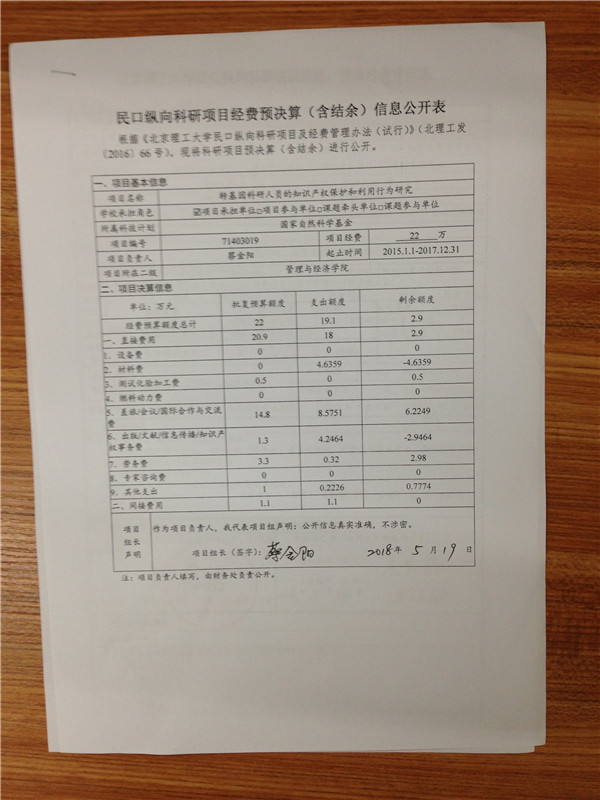 民口纵向科研项目经费预决算（含结余）信息公开表
根据《北京理工大学民口纵向科研项目及经费管理办法（试行）》（北理工发
〔2016〕66号），现将科研项目预决算（含结余）进行公开。
一、项目基本信息
项目名称 转基因科研人员的知识产权保护和利用行为研究
学校承担角色 ☑项目承担单位□项目参与单位□课题牵头单位□课题参与单位
所属科技计划 国家自然科学基金
项目编号 71403019 项目经费 22 万
项目负责人 蔡金阳 起止时间 2015.1.1-2017.12.31
项目所在二级 管理与经济学院
二、项目决算信息
单位：万元 批复预算额度 支出额度 剩余额度
经费预算额度总计 22 19.1 2.9
一、直接费用 20.9 18 2.9
1、设备费 0 0 0
2、材料费 0 4.6359 -4.6359
3、测试化验加工费 0.5 0 0.5
4、燃料动力费 0 0 0
5、差旅/会议/国际合作与交流
费 14.8 8.5751 6.2249
6、出版/文献/信息传播/知识产
权事务费 1.3 4.2464 -2.9464
7、劳务费 3.3 0.32 2.98
8、专家咨询费 0 0 0
9、其他支出 1 0.2226 0.7774
二、间接费用 1.1 1.1 0
项目
组长
声明
作为项目负责人，我代表项目组声明：公开信息真实准确，不涉密。
项目组长（签字）：蔡金阳 2018年 5 月 19 日
注：项目负责人填写，由财务处负责公开。